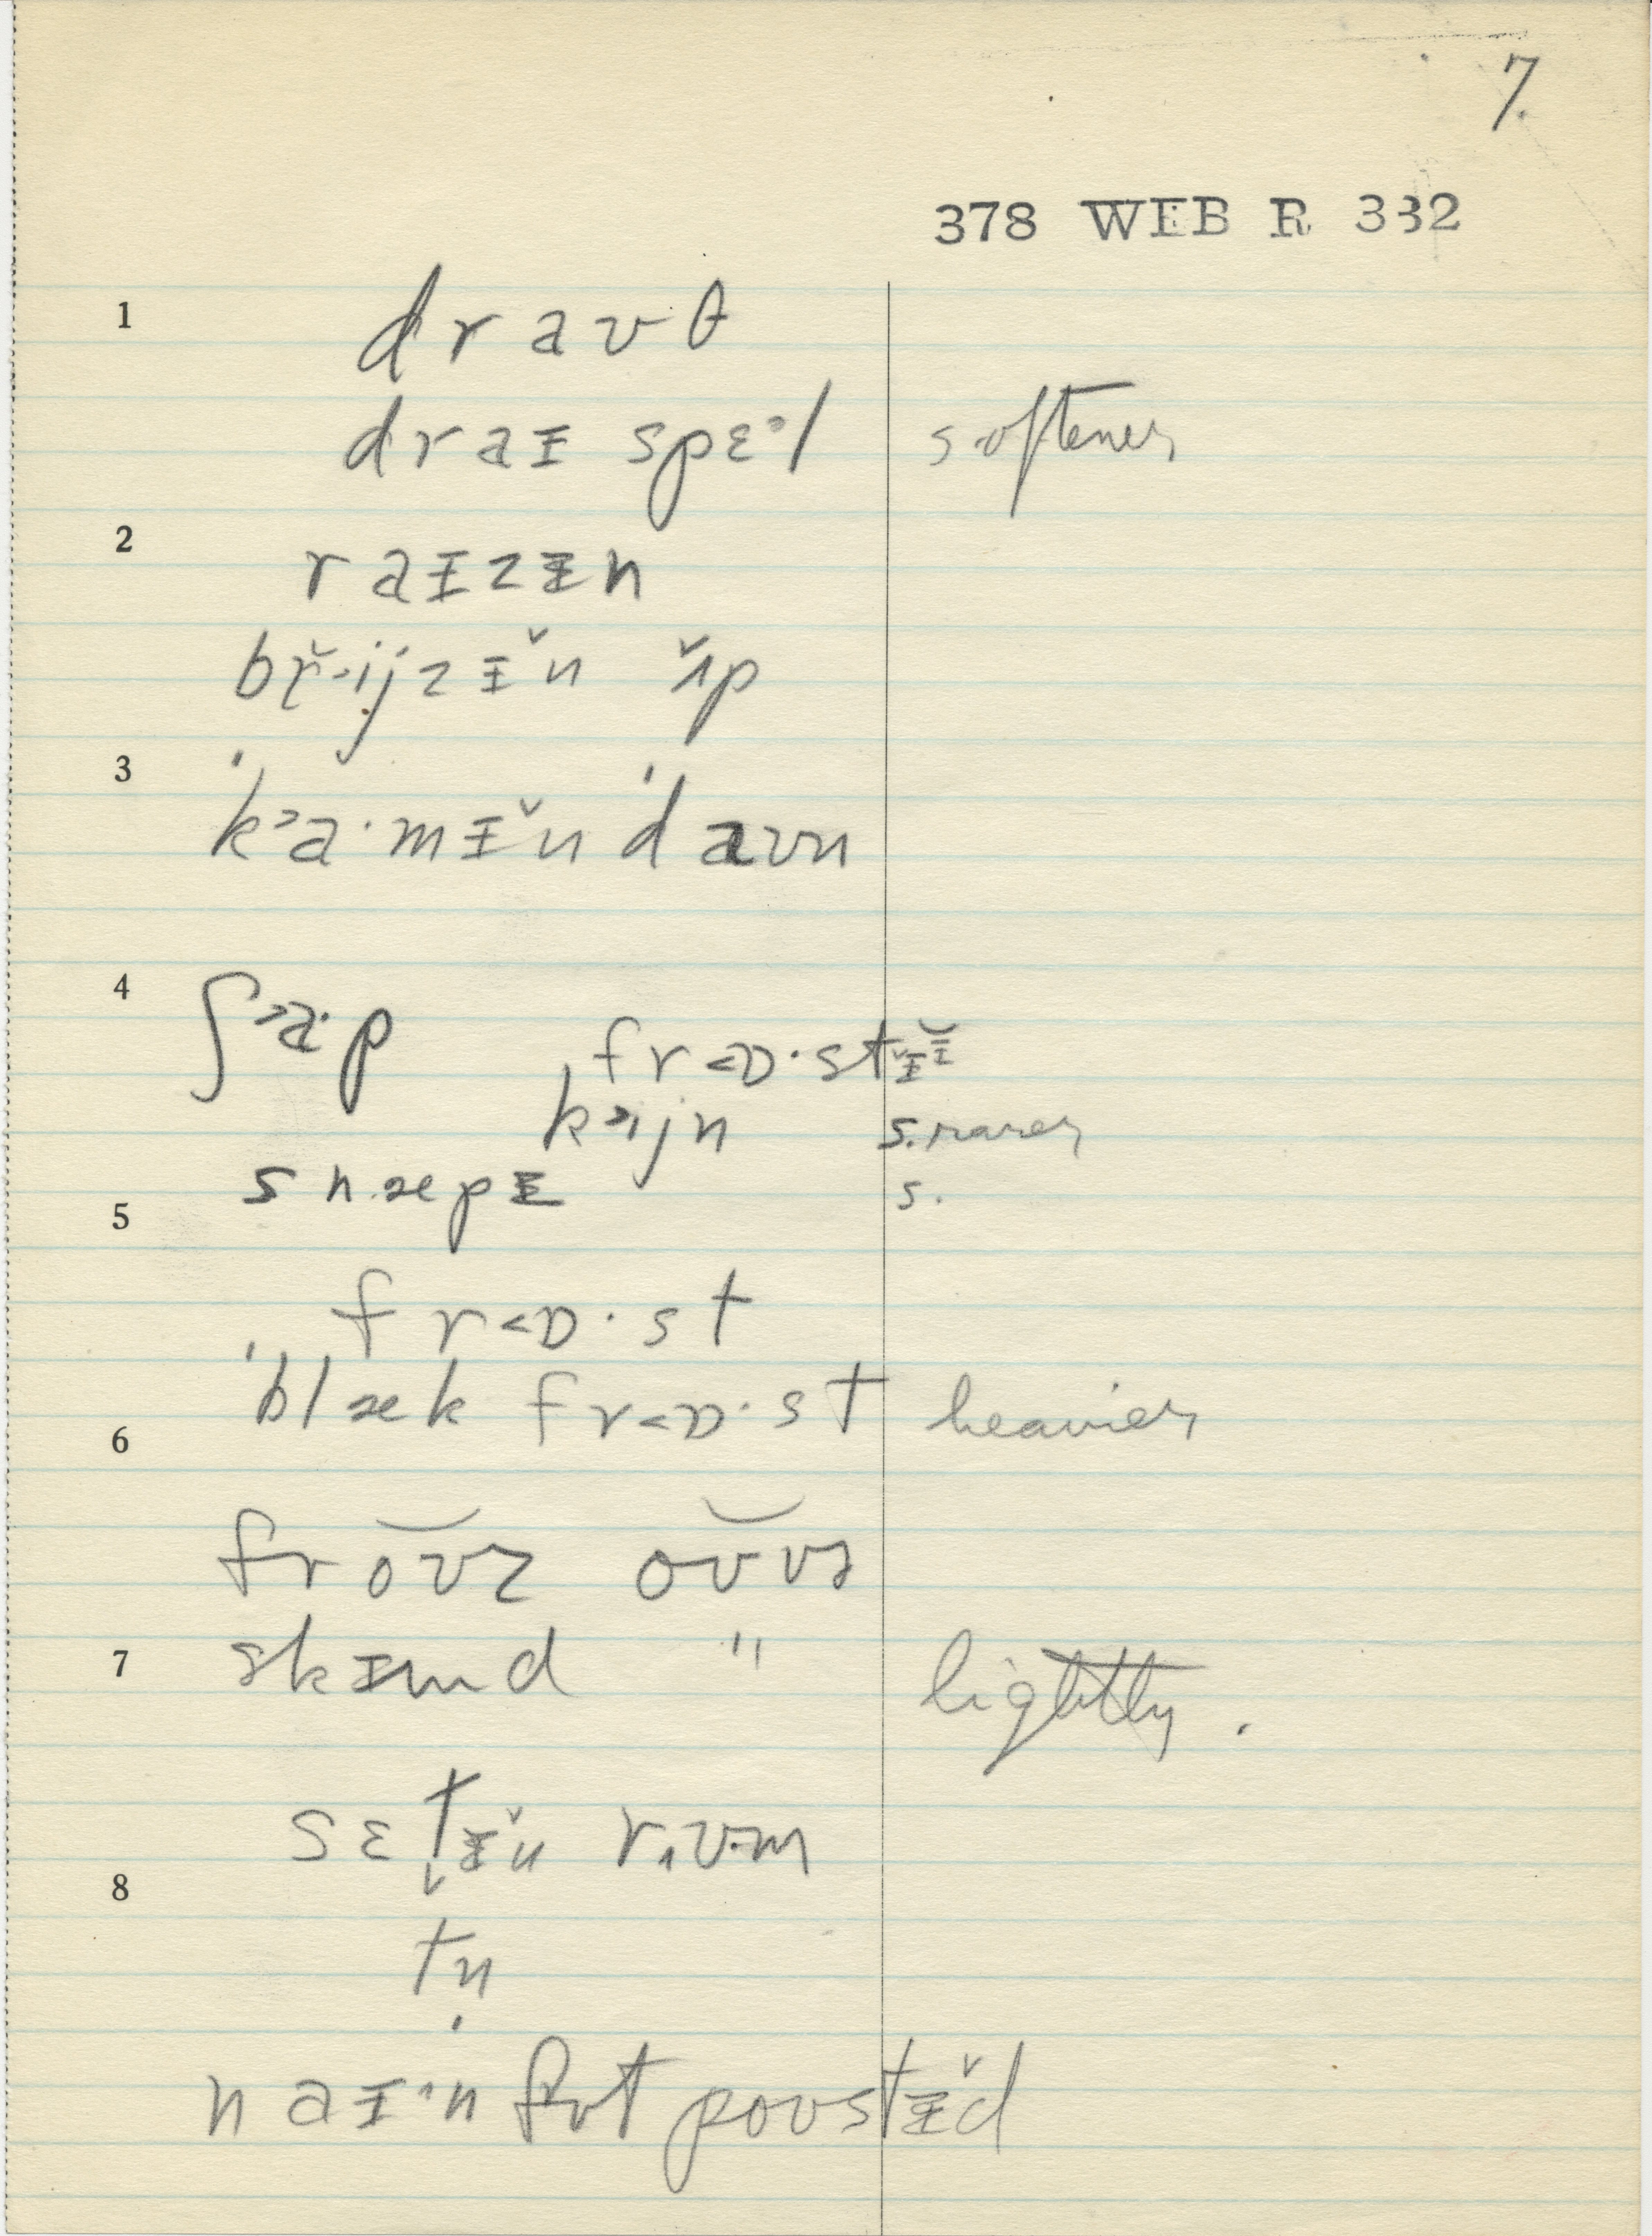 7.
378 WEB R 332
1 d r a ʊ θ
d r a ɪ s p ɛ ə l softener
2 r a ɪ z ɨ n
b r̬ ˃ i j z ɪ̆ n ʌ̆ p
3 ˈk ˃ a · m ɪ̆ n ˈd a ʊ n
4 ʃ ˃ a · p f r ˂ ɒ · s t ɪ̆ ɪ̆
ˌk ˃ i j n s. rarer
s n æ p ɪ s.
5
f r ˂ ɒ · s t
ˈb l æ k f r ˂ ɒ · s t heavier
6
f r o͝ʊ z o͝ʊ v ɚ
7 s k ɪ m d " lightly.
s ɛ t̬ ɨ̆ n r ˌ ʊ · m
8
t n
n a ɪ · n f ʊ t p o ʊ s t ɨ̆ d